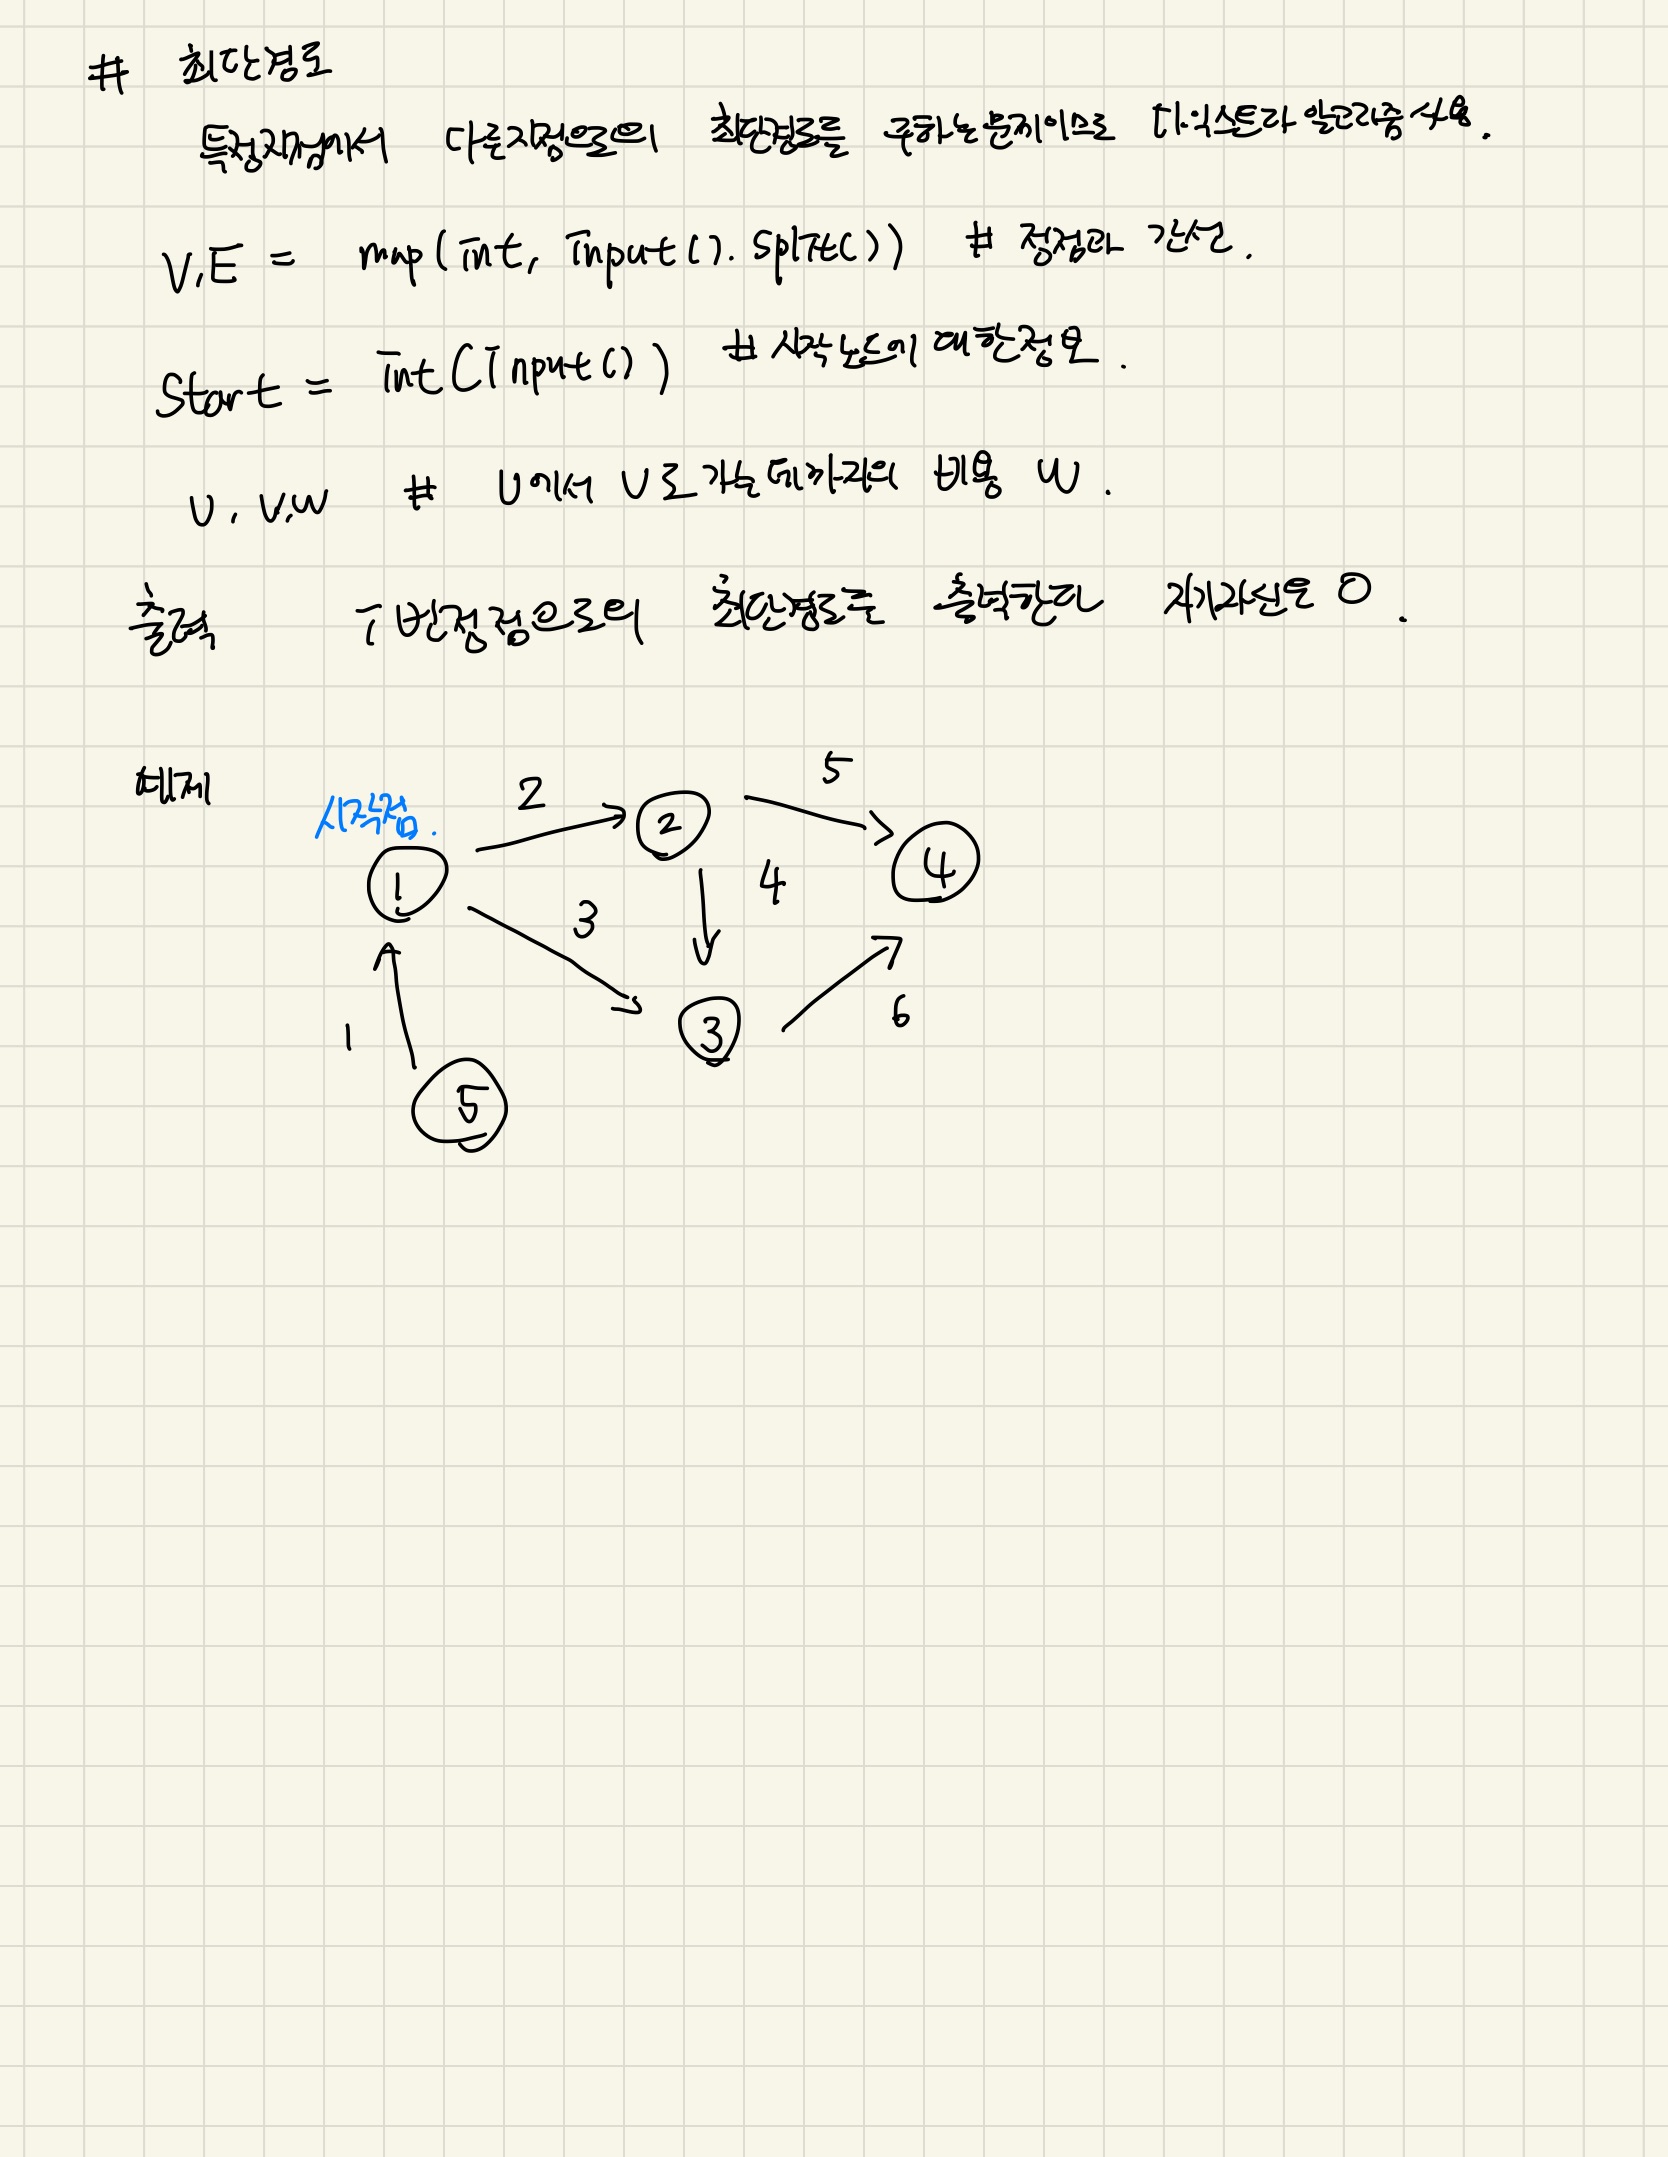 # 최단경로
특정지점에서 다른지점으로의 최단경로를 구하는문제이므로 다익스트라 알고리즘 사용.
V,E = map(int, input().split()) # 정점과 간선.
Start = int(input()) # 시작노드에 대한정보.
U, V, W # U에서 V로 가는데까지의 비용 W.
출력 i번정점으로의 최단경로를 출력한다 자기자신은 0.
예제
시작점.
2
5
1
2
4
4
3
3
6
1
5